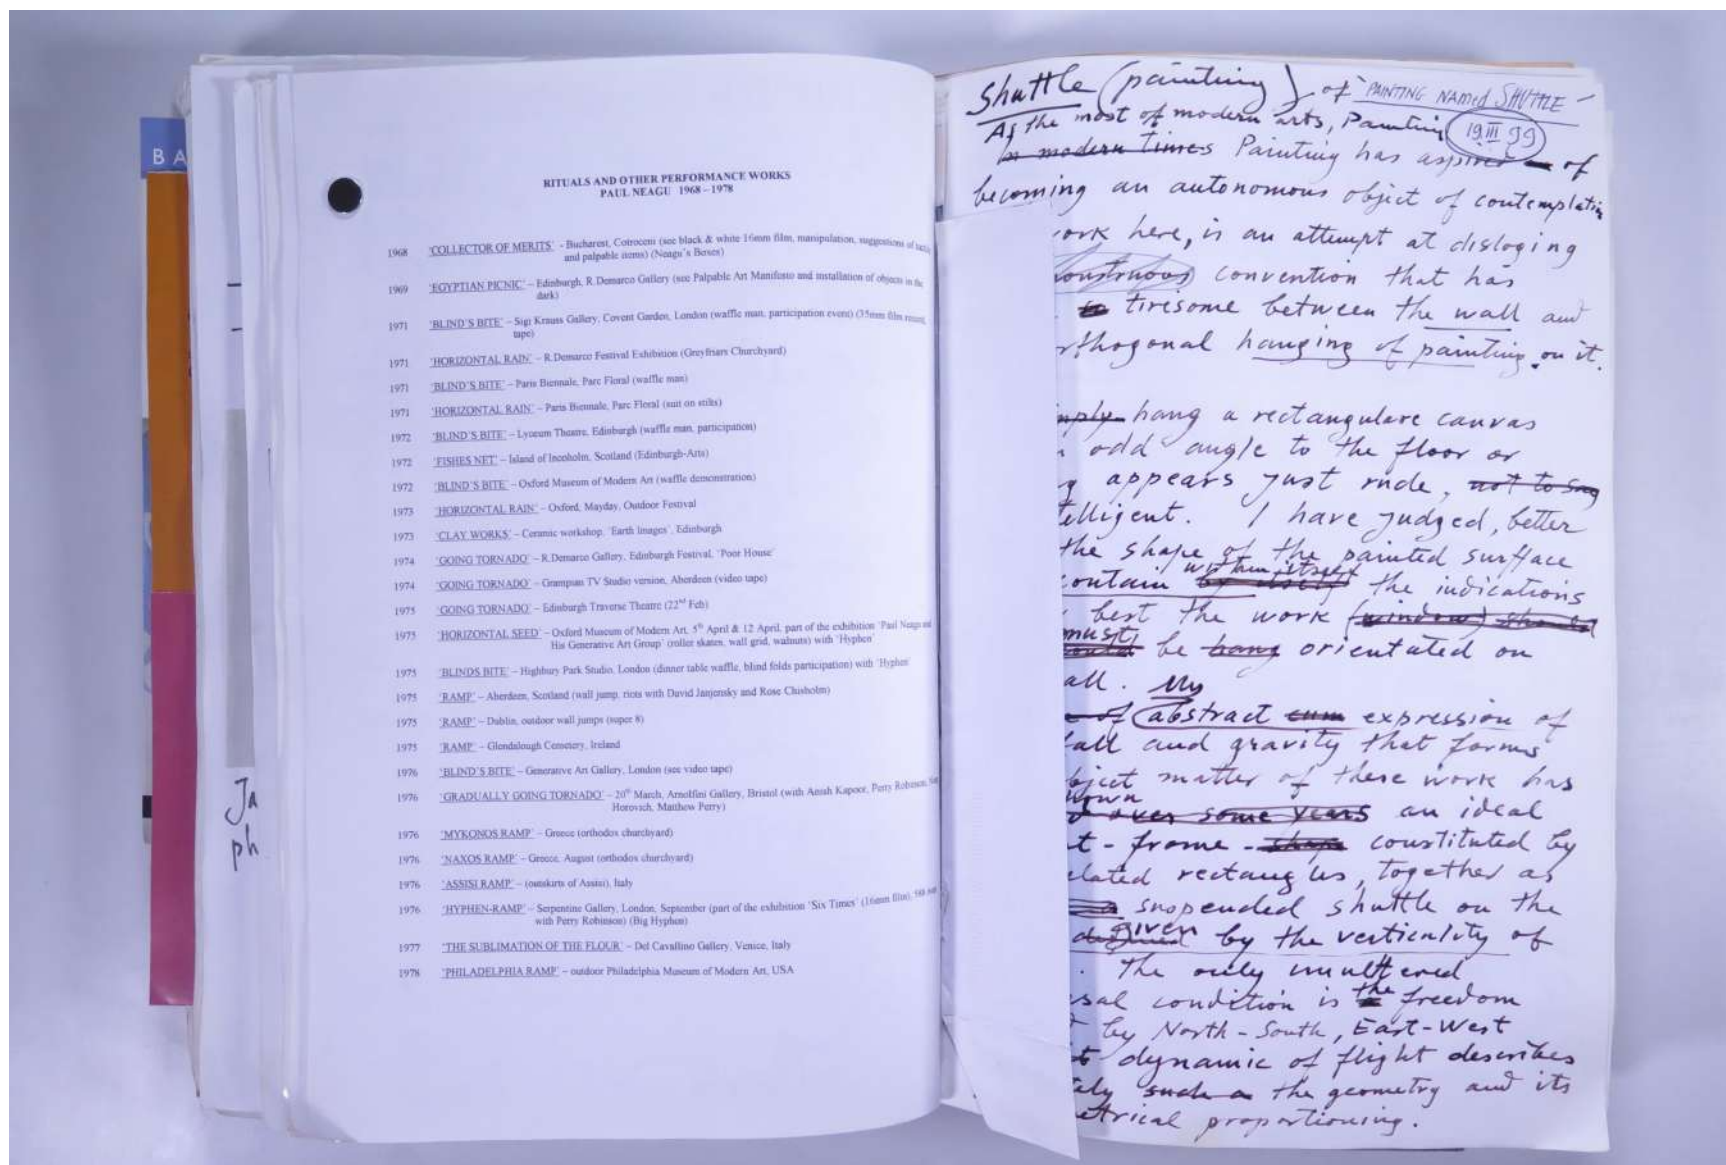 BA
Ja
ph
RITUALS AND OTHER PERFORMANCE WORKS
PAUL NEAGU 1968 – 1978
1968 'COLLECTOR OF MERITS' - Bucharest, Cotroceni (see black & white 16mm film, manipulation, suggestions of
and palpable items) (Neagu's Boxes)
1969 'EGYPTIAN PICNIC' – Edinburgh, R.Demarco Gallery (see Palpable Art Manifesto and installation of objects in the
dark)
1971 'BLIND'S BITE' – Sigi Krauss Gallery, Covent Garden, London (waffle man, participation event) (35mm film
tape)
1971 'HORIZONTAL RAIN' – R.Demarco Festival Exhibition (Greyfriars Churchyard)
1971 'BLIND'S BITE' – Paris Biennale, Parc Floral (waffle man)
1971 'HORIZONTAL RAIN' – Paris Biennale, Parc Floral (suit on stiks)
1972 'BLIND'S BITE' – Lyceum Theatre, Edinburgh (waffle man, participation)
1972 'FISHES NET' – Island of Incholm, Scotland (Edinburgh-Arts)
1972 'BLIND'S BITE' – Oxford Museum of Modern Art (waffle demonstration)
1973 'HORIZONTAL RAIN' – Oxford, Mayday, Outdoor Festival
1973 'CLAY WORKS' – Ceramic workshop, 'Earth Images', Edinburgh
1974 'GOING TORNADO' – R.Demarco Gallery, Edinburgh Festival, 'Poor House'
1974 'GOING TORNADO' – Grampian TV Studio version, Aberdeen (video tape)
1975 'GOING TORNADO' – Edinburgh Traverse Theatre (22nd Feb)
1975 'HORIZONTAL SEED' – Oxford Museum of Modern Art, 5th April & 12 April, part of the exhibition 'Paul Neagu and
His Generative Art Group' (roller skates, wall grid, walnuts) with 'Hyphen'
1975 'BLINDS BITE' – Highbury Park Studio, London (dinner table waffle, blind folds participation) with 'Hyphen'
1975 'RAMP' – Aberdeen, Scotland (wall jump, riots with David Janjonsky and Rose Chisholm)
1975 'RAMP' – Dublin, outdoor wall jumps (super 8)
1975 'RAMP' – Glendalough Cemetery, Ireland
1976 'BLIND'S BITE' – Generative Art Gallery, London (see video tape)
1976 'GRADUALLY GOING TORNADO' – 20th March, Arnolfini Gallery, Bristol (with Anish Kapoor, Perry Robinson,
Horovich, Matthew Perry)
1976 'MYKONOS RAMP' – Greece (orthodox churchyard)
1976 'NAXOS RAMP' – Greece, August (orthodox churchyard)
1976 'ASSISI RAMP' – (outskirts of Assisi), Italy
1976 'HYPHEN-RAMP' – Serpentine Gallery, London, September (part of the exhibition 'Six Times' (16mm film),
with Perry Robinson) (Big Hyphen)
1977 'THE SUBLIMATION OF THE FLOUR' – Del Cavallino Gallery, Venice, Italy
1978 'PHILADELPHIA RAMP' – outdoor Philadelphia Museum of Modern Art, USA
Shuttle (painting) of PAINTING NAMED SHUTTLE –
19 III 99
As the most of modern arts, Painting
In modern times Painting has aspired of
becoming an autonomous object of contemplation
work here, is an attempt at disloging
monstruous convention that has
tiresome between the wall and
rthogonal hanging of painting on it.
mply hang a rectangulare canvas
odd angle to the floor or
appears just rude, not to say
telligent. I have judged, better
the shape of the painted surface
within itself
contain by itself the indications
best the work (window) should
must
be hang orientated on
all. My
of abstract cum expression of
fall and gravity that forms
bject matter of these work has
d over some years an ideal
t - frame - shape constituted by
elated rectangles, together as
suspended shuttle on the
given
defined by the verticality of
. The only unaltered
sal condition is the freedom
by North-South, East-West
dynamic of flight describes
ely such a the geometry and its
etrical proportioning.